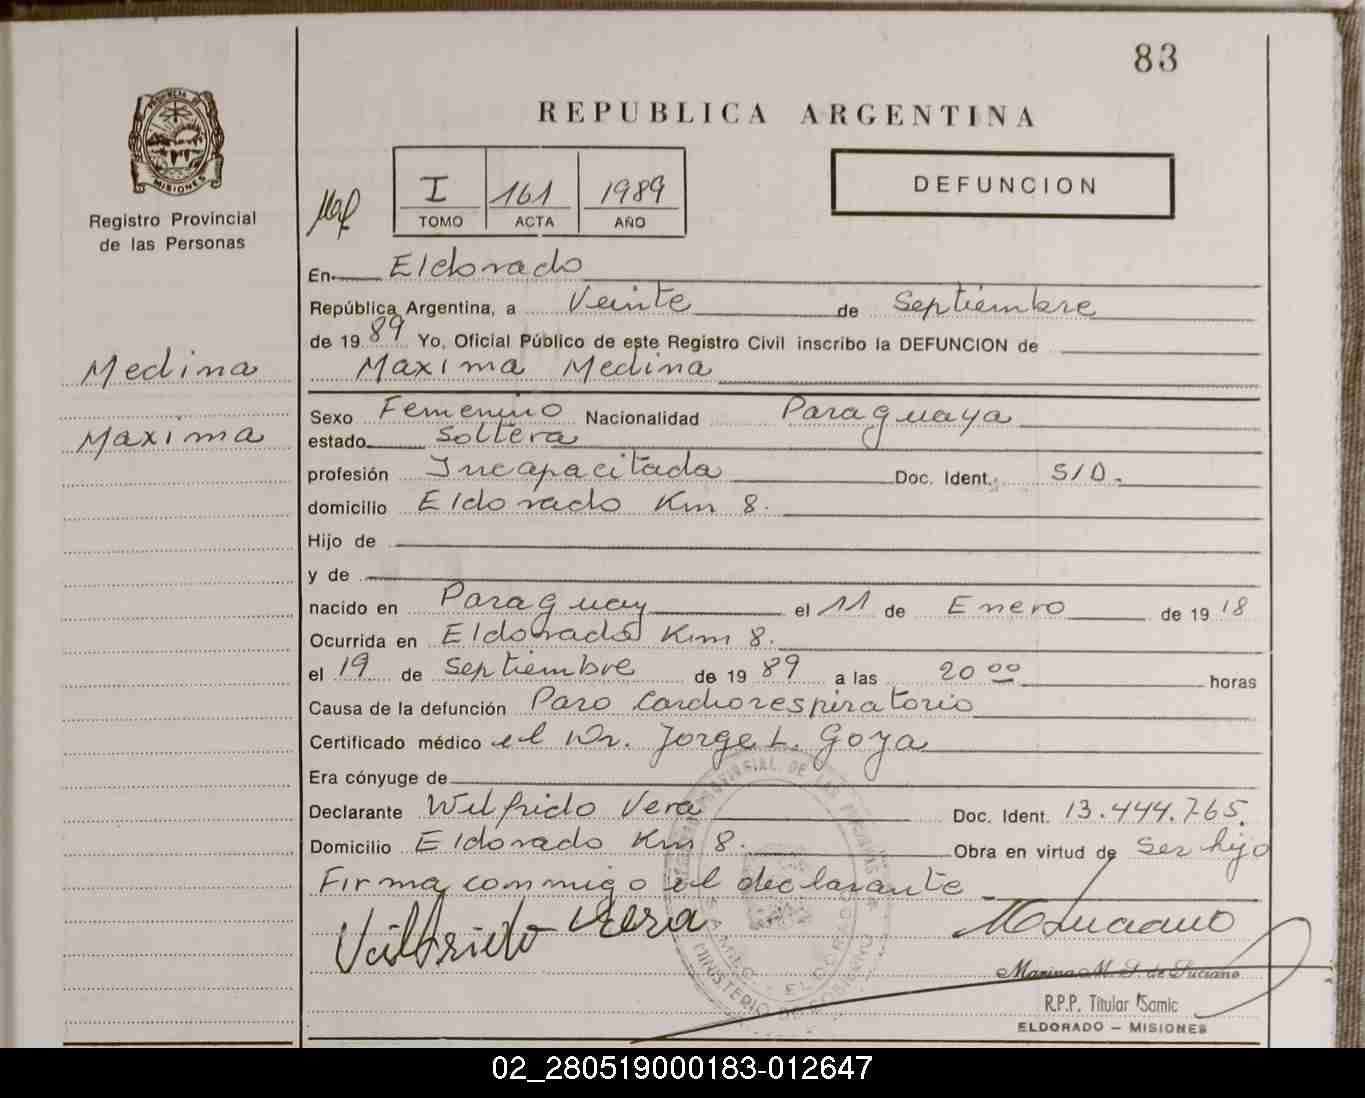 83
REPUBLICA ARGENTINA
PROVINCIA DE
MISIONES
Registro Provincial
de las Personas
I 161 1989
TOMO ACTA AÑO
DEFUNCION
En Eldorado
República Argentina, a Veinte de Septiembre
de 1989 Yo, Oficial Público de este Registro Civil inscribo la DEFUNCION de
Medina
Maxima Medina
Maxima
Sexo Femenino Nacionalidad Paraguaya
estado Soltera
profesión Incapacitada Doc. Ident. S/D.
domicilio Eldorado Km 8.
Hijo de
y de
nacido en Paraguay el 11 de Enero de 1918
Ocurrida en Eldorado Km 8.
el 19 de Septiembre de 1989 a las 20 00 horas
Causa de la defunción Paro Cardiorespiratorio
Certificado médico el Dr. Jorge L. Goya
Era cónyuge de
Declarante Wilfrido Vera Doc. Ident. 13.444.765.
Domicilio Eldorado Km 8. Obra en virtud de Ser hijo
Firma conmigo el declarante
Wilfrido Vera
Marina M. de Luciano
R.P.P. Titular Samic
ELDORADO - MISIONES
02_280519000183-012647